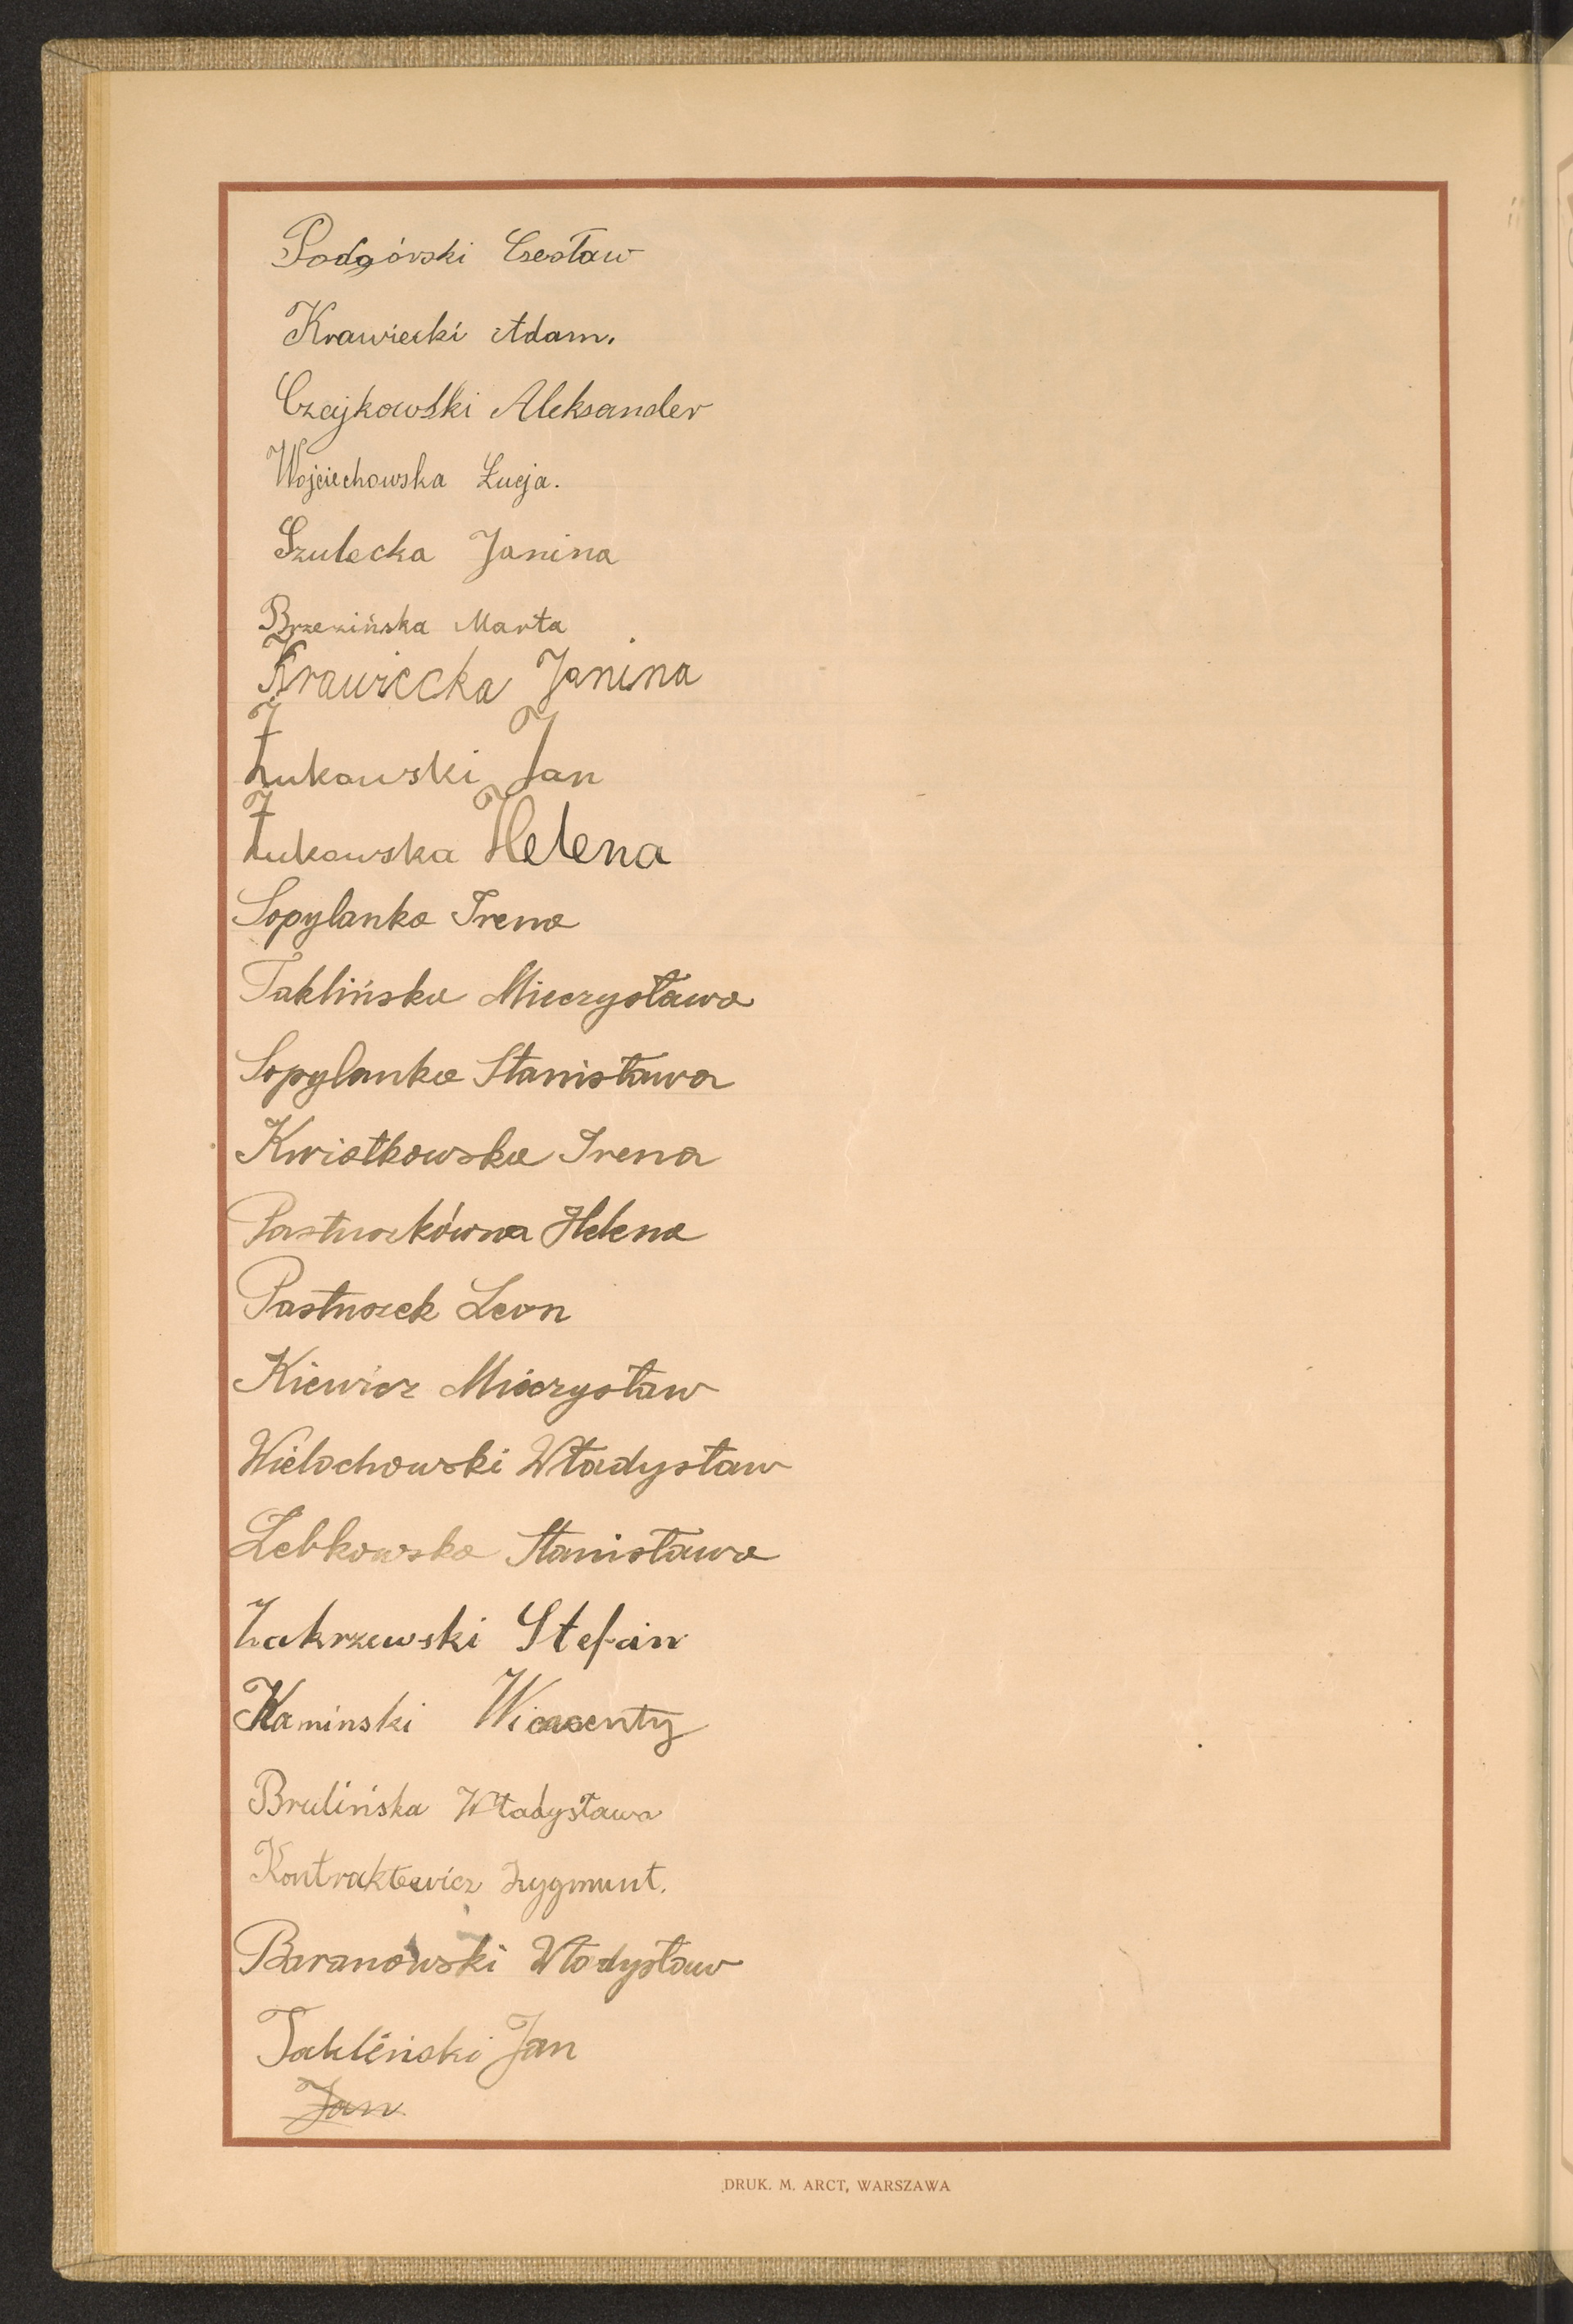 Podgórski Czesław
Krawiecki Adam.
Czajkowski Aleksander
Wojciechowska Łucja.
Szulecka Janina
Brzezińska Marta
Krawiecka Janina
Żukowski Jan
Żukowska Helena
Sopylanka Irena
Taklińska Mieczysława
Sopylanka Stanisława
Kwiatkowska Irena
Pastuszkówna Helena
Pastuszek Leon
Kiewicz Mieczysław
Wielochowski Władysław
Żebkowska Stanisława
Zakrzewski Stefan
Kaminski Wincenty
Brulińska Władysława
Kontraktewicz Zygmunt.
Baranowski Władysław
Takliński Jan
Jan
DRUK. M. ARCT, WARSZAWA